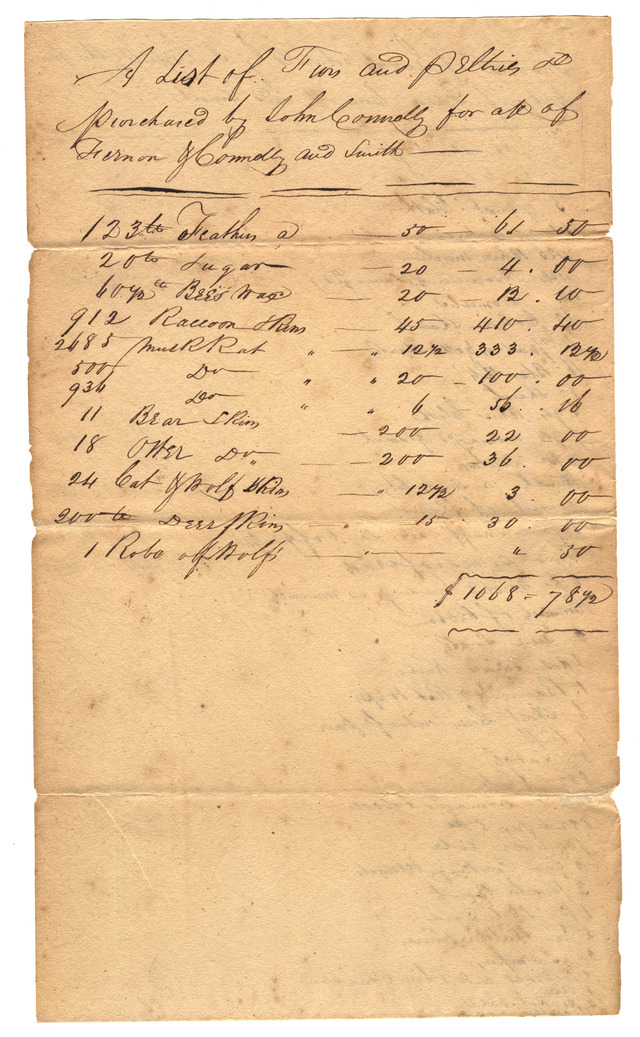 A List of Furs and Peltries &c
purchased by John Connolly for a/c of
Vernon & Connolly and Smith
123 lb Feathers a — 50 — 61 — 50
20 lb Sugar — 20 — 4 . 00
60½ lb Bees Wax — 20 12 . 10
912 Raccoon Skins — 45 410 . 40
2665 Musk Rat " — " 12½ 333 . 12½
500 Do " — " 20 — 100 . 00
936 Do " — " 6 56 . 16
11 Bear Skins — 200 22 00
18 Otter Do — 200 36 . 00
24 Cat & Wolf Skins — " 12½ 3 . 00
200 lb Deer Skins — " 15 . 30 . 00
1 Robe of Wolfs — " — " 50
$ 1068 = 78½